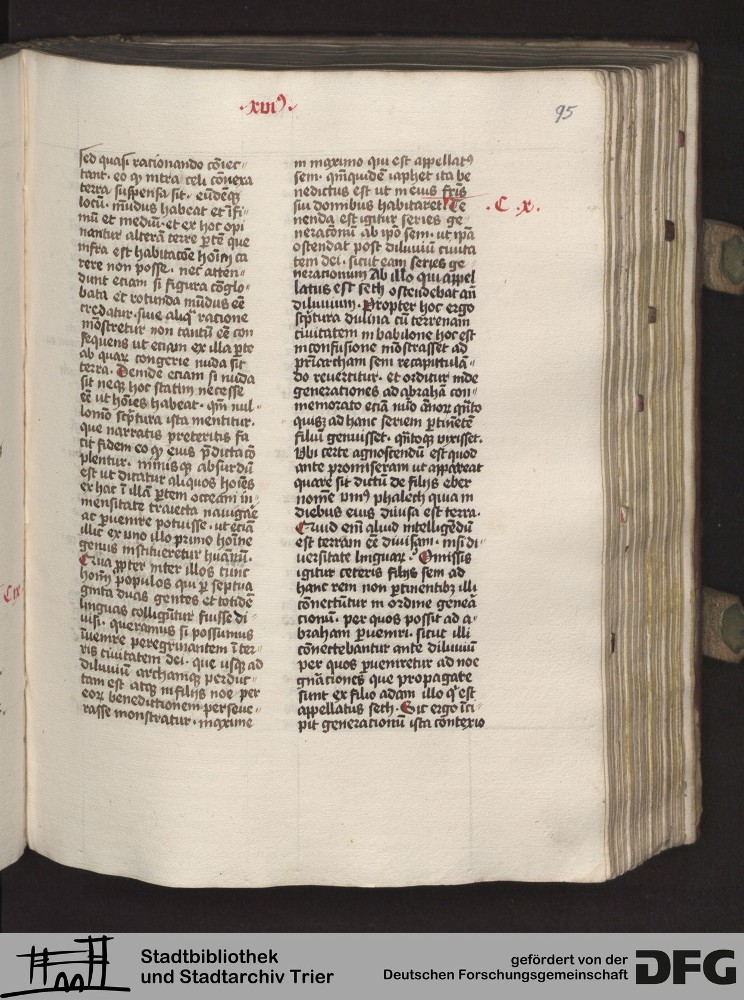 ·xvıꝰ·
95
sed quasi racionando cōiec-
tant· eo ꝙ intra celi cōuexa
terra suspensa sit· eūdēqꝫ
locū· mūdus habeat et īfi-
mū et mediū· et ex hoc opi
nantur alterā terre ꝑtē que
infra est habitacōe hoīm ca
rere non posse· nec atten-
dunt eciam si figura cōglo-
bata et rotunda mūdus eē
credatur· siue aliqͣ racione
mōstretur non tantū eē con
sequens ut eciam ex illa ꝑte
ab aquarꝫ congerie nuda sit
terra· Deinde eciam si nuda
sit neqꝫ hoc statim necesse
eē ut hoīes habeat· qm̄ nul-
lomō scpͥtura ista mentitur·
que narratis preteritis fa
cit fidem eo ꝙ eius p̄dicta cō
plentur· nimisqꝫ absurdū
est ut dicatur aliquos hoīes
ex hac ī illā ꝑtem oceani in-
mensitate traiecta nauigāe
ac ꝑuenire potuisse· ut eciā
illic ex uno illo primo hoīne
genus institueretur hūanū·
Qua ꝓpter inter illos tunc
C ıx
hoīm populos qui ꝑ septua
ginta duas gentes et totidē
linguas colliguntur fuisse di-
uisi· queramus si possumus
īuenire peregrinantem ī ter-
ris ciuitatem dei· que usqꝫ ad
diluuiū archamqꝫ perduc-
tam est atqꝫ in filijs noe per
eorꝫ benedictionem perseue-
rasse monstratur· maxime
in maximo qui est appellatꝰ
sem· qm̄quidē iaphet ita be
nedictus est ut in eius fr̄is
sui domibus habitaret Te
·C ·x·
nenda est igitur series ge
neracionū ab ip̄o sem· ut ip̄a
ostendat post diluuiū ciuita
tem dei· sicut eam series ge
neracionum Ab illo qui appel
latus est seth ostendebat an̄
diluuium· Propter hoc ergo
scpͥtura diuina cū terrenam
ciuitatem in babilone hoc est
in confusione mōstrasset ad
pr̄iarcham sem recapitulā-
do reuertitur· et orditur inde
generationes ad abrahā con-
memorato eciā nūo ānorꝫ qͣnto
quisqꝫ ad hanc seriem ꝑtinētē
filiū genuisset· qͣntoqꝫ uixisset·
Vbi certe agnoscendū est quod
ante promiseram ut appareat
quare sit dictū de filijs eber
nomē vniꝰ phalech quia in
diebus eius diuisa est terra·
Quid enī aliud intelligēdū
est terram eē diuisam· nisi di-
uersitate linguarꝫ· Omissis
igitur ceteris filijs sem ad
hanc rem non ꝑtinentibꝫ illi
cōnectūtur in ordine geneā
cionū· per quos possit ad a-
braham ꝑueniri· sicut illi
cōnectebantur ante diluuiū
per quos ꝑueniretur ad noe
gn̄ationes que propagate
sunt ex filio adam illo qͥ est
appellatus seth· Sic ergo īci-
pit generationū ista contexio
Stadtbibliothek
und Stadtarchiv Trier
gefördert von der
Deutschen Forschungsgemeinschaft
DFG